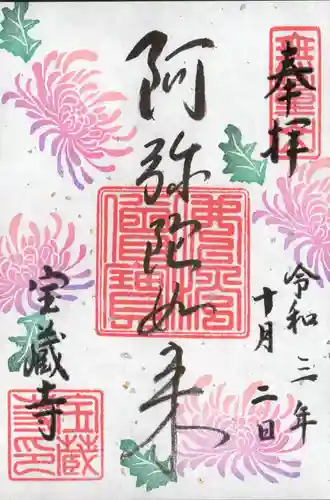 奉拝
令和三年
十月二日
阿弥陀如来
宝蔵寺
宝蔵
寺印